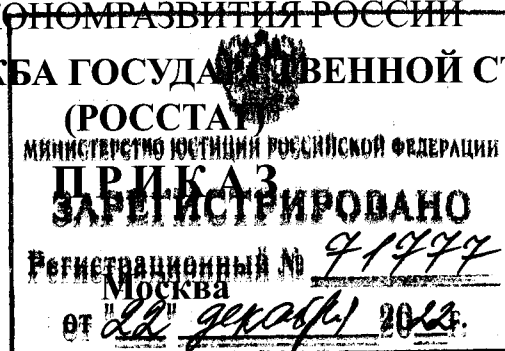 КОНОМРАЗВИТИЯ РОССИИ
БА ГОСУДАРСТВЕННОЙ С
(РОССТАТ)
МИНИСТЕРСТВО ЮСТИЦИИ РОССИЙСКОЙ ФЕДЕРАЦИИ
ПРИКАЗ
ЗАРЕГИСТРИРОВАНО
Регистрационный № 71777
Москва
от "22" декабря 2022г.